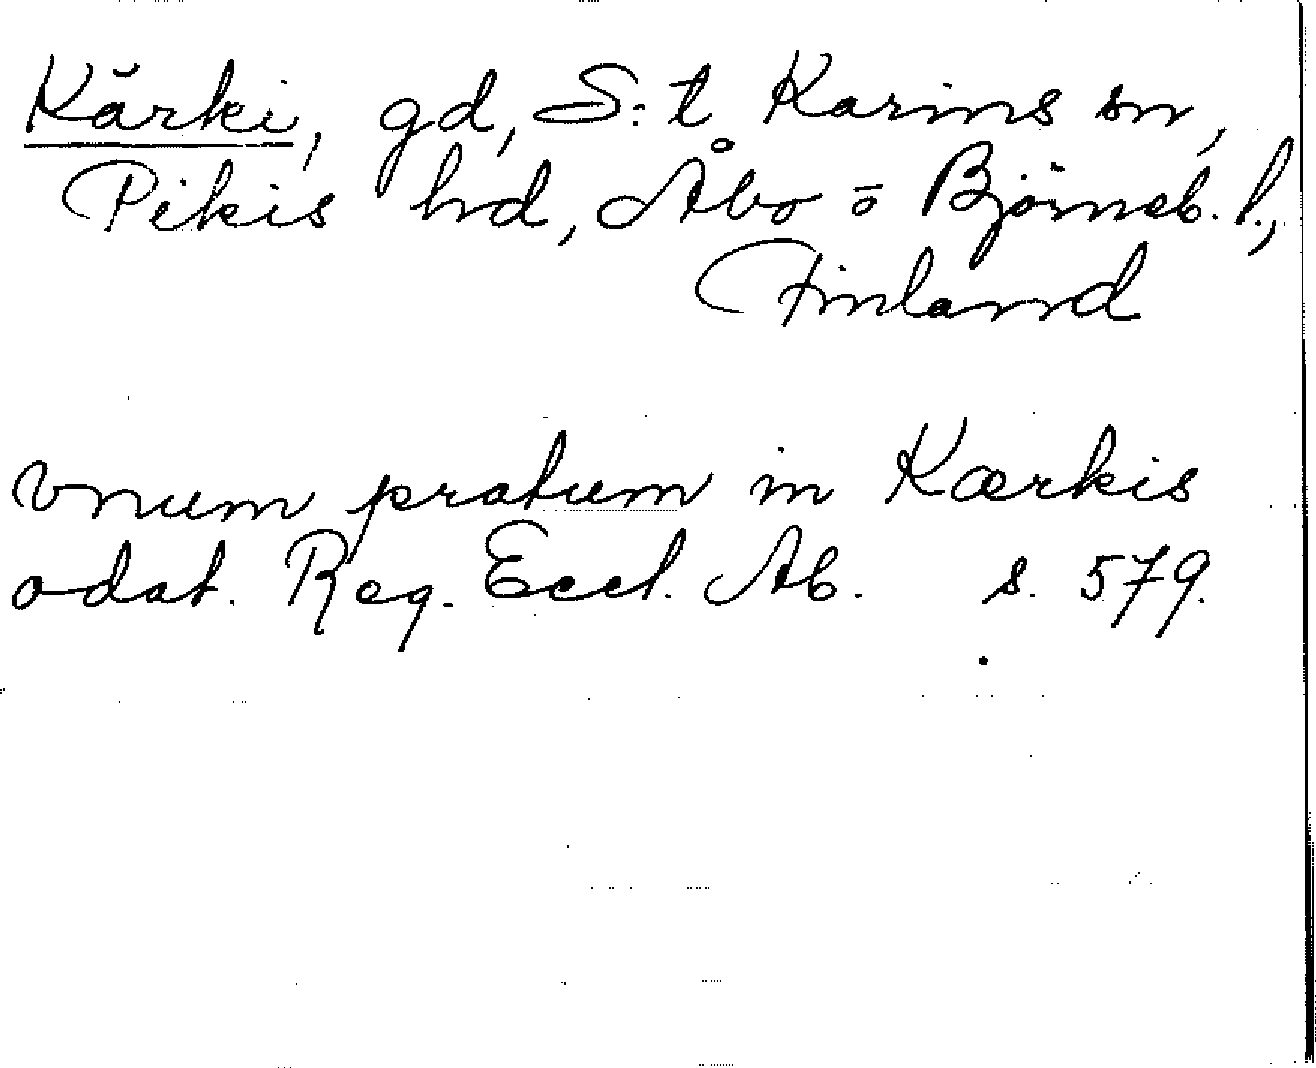 Kärki, gd, S:t Karins sn,
Pikis hd, Åbo o Björneb. l.,
Finland
Vnum pratum in Kærkis
odat. Reg. Eccl. Ab. s. 579.